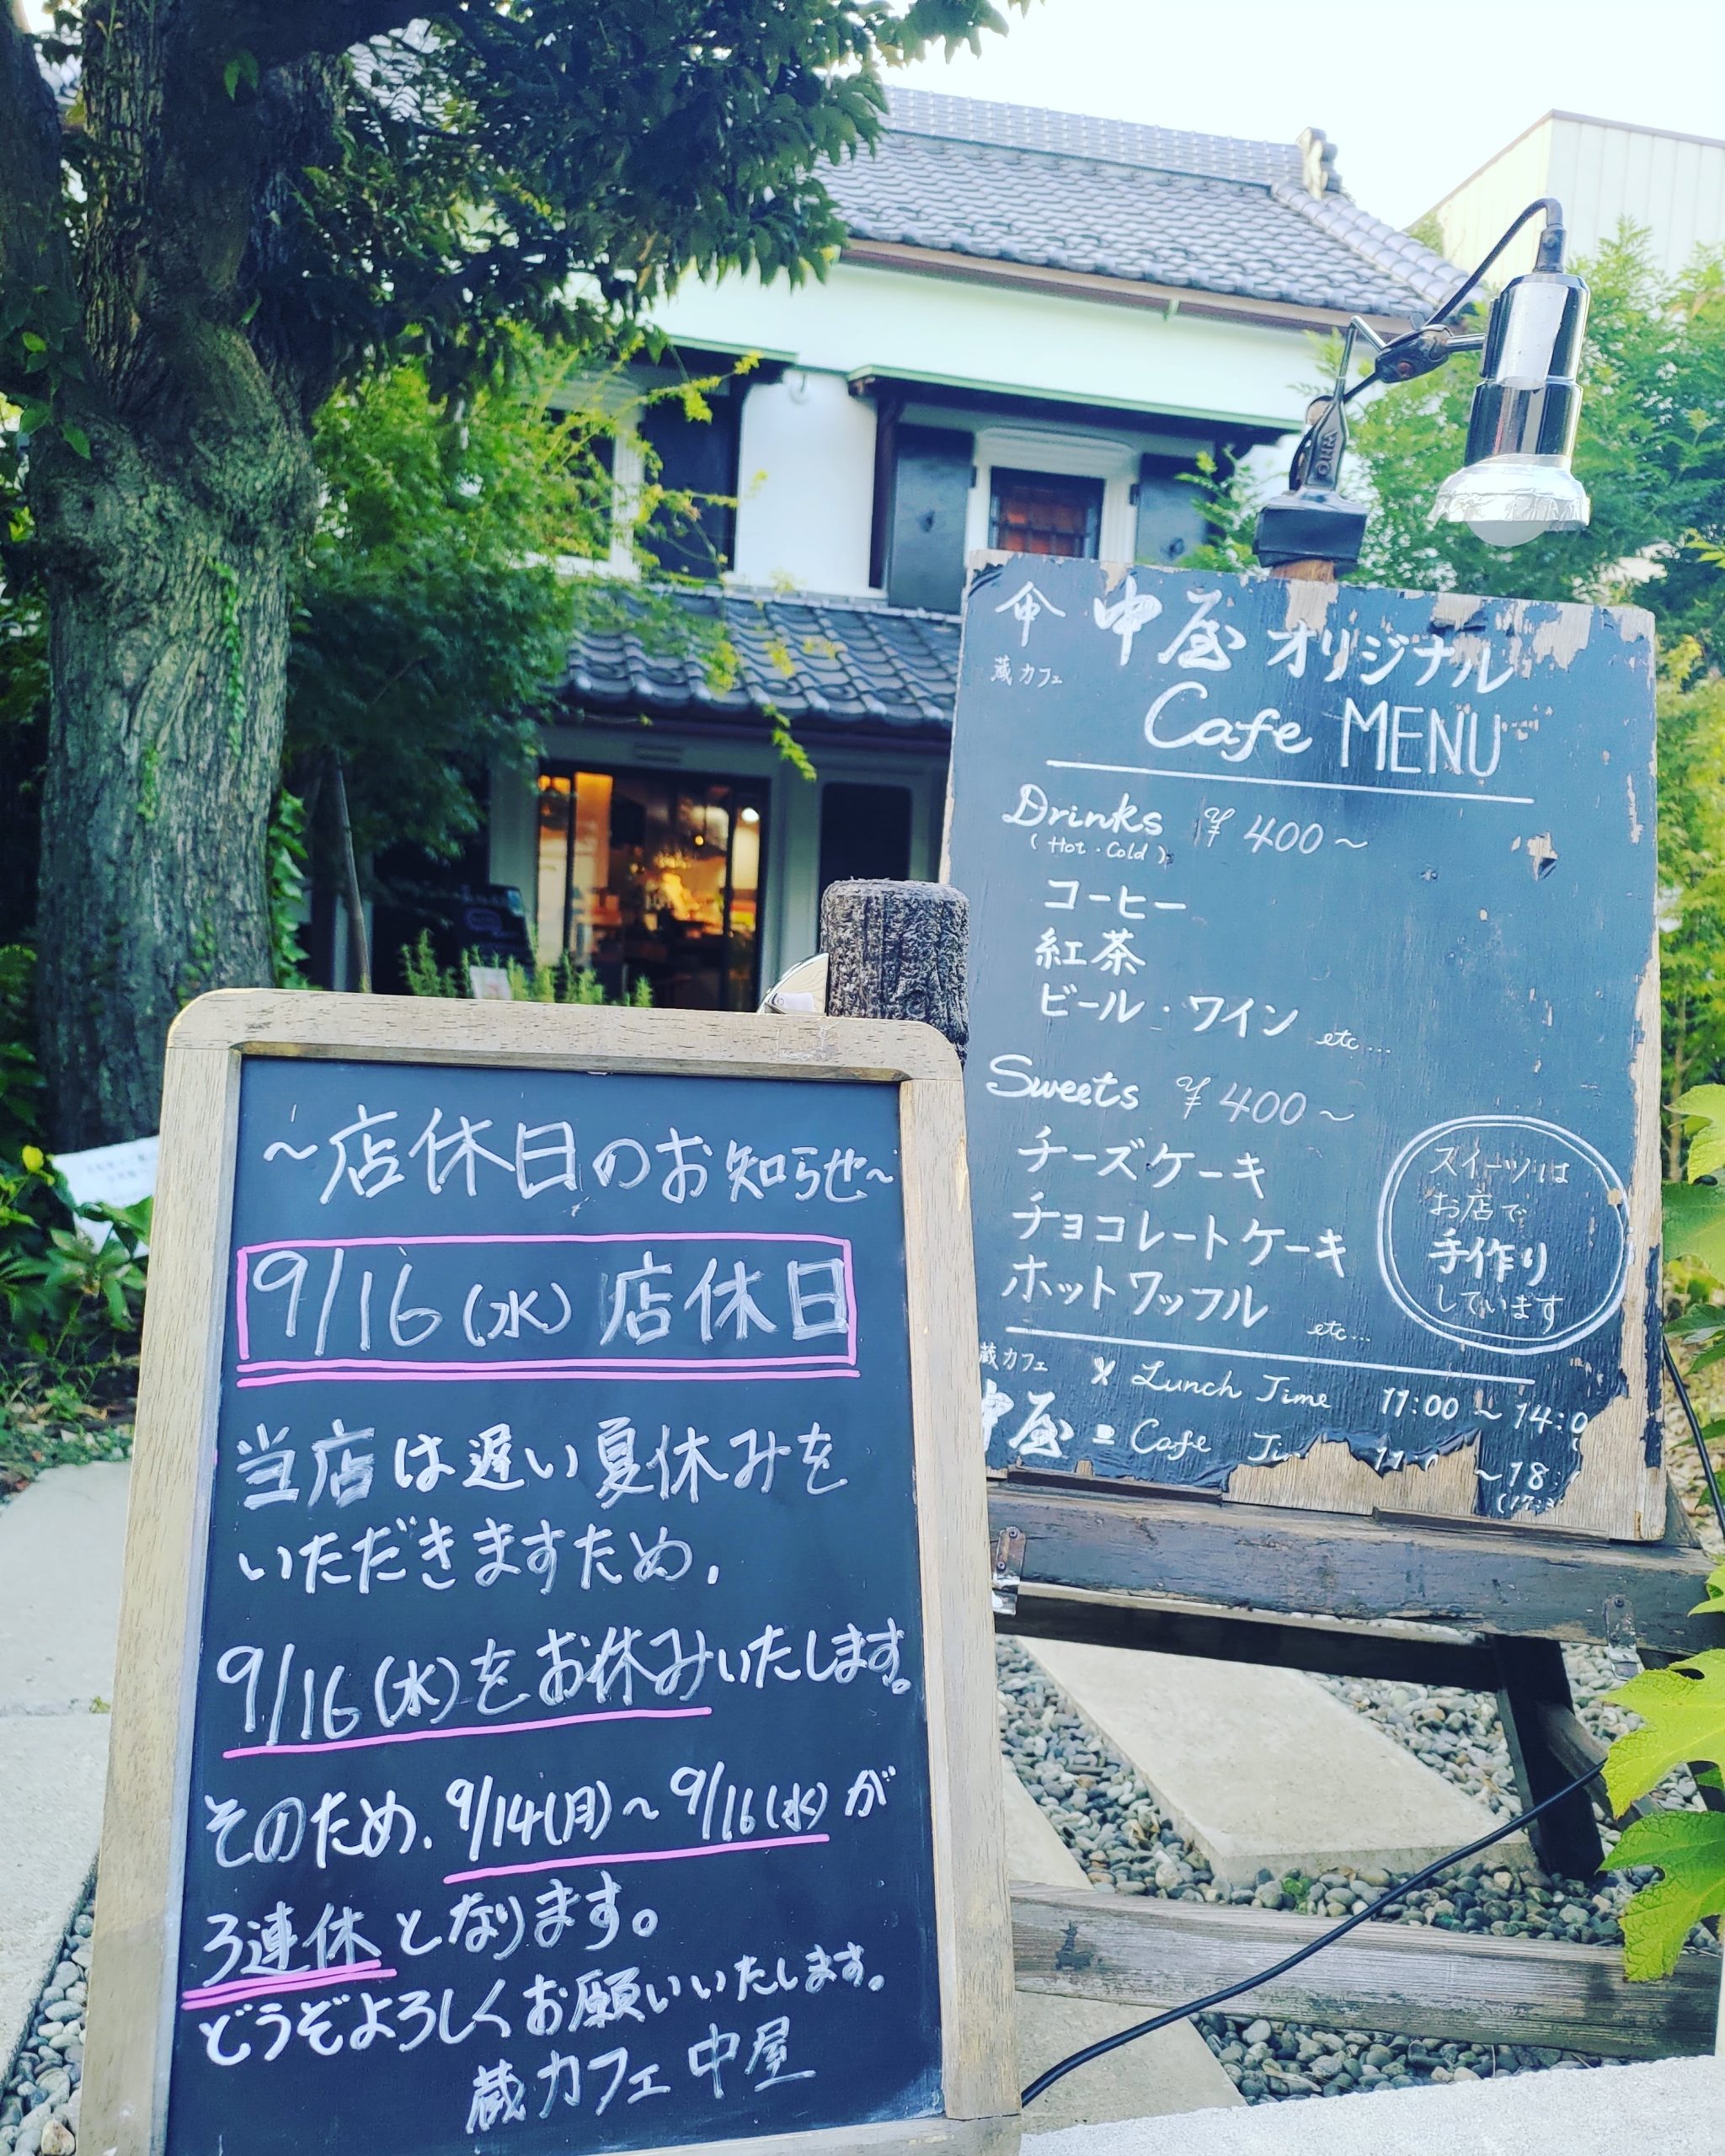 ~店休日のお知らせ~
9/16(水) 店休日
当店は遅い夏休みを
いただきますため、
9/16(水)をお休みいたします。
そのため、9/14(月)~9/16(水)が
3連休となります。
どうぞよろしくお願いいたします。
蔵カフェ 中屋
中屋 オリジナル
蔵カフェ
Cafe MENU
Drinks ¥400~
(Hot・Cold)
コーヒー
紅茶
ビール・ワイン etc...
Sweets ¥400~
チーズケーキ
チョコレートケーキ
ホットワッフル etc...
スイーツは
お店で
手作り
しています
蔵カフェ
中屋
Lunch Time 11:00~14:0
Cafe ~18